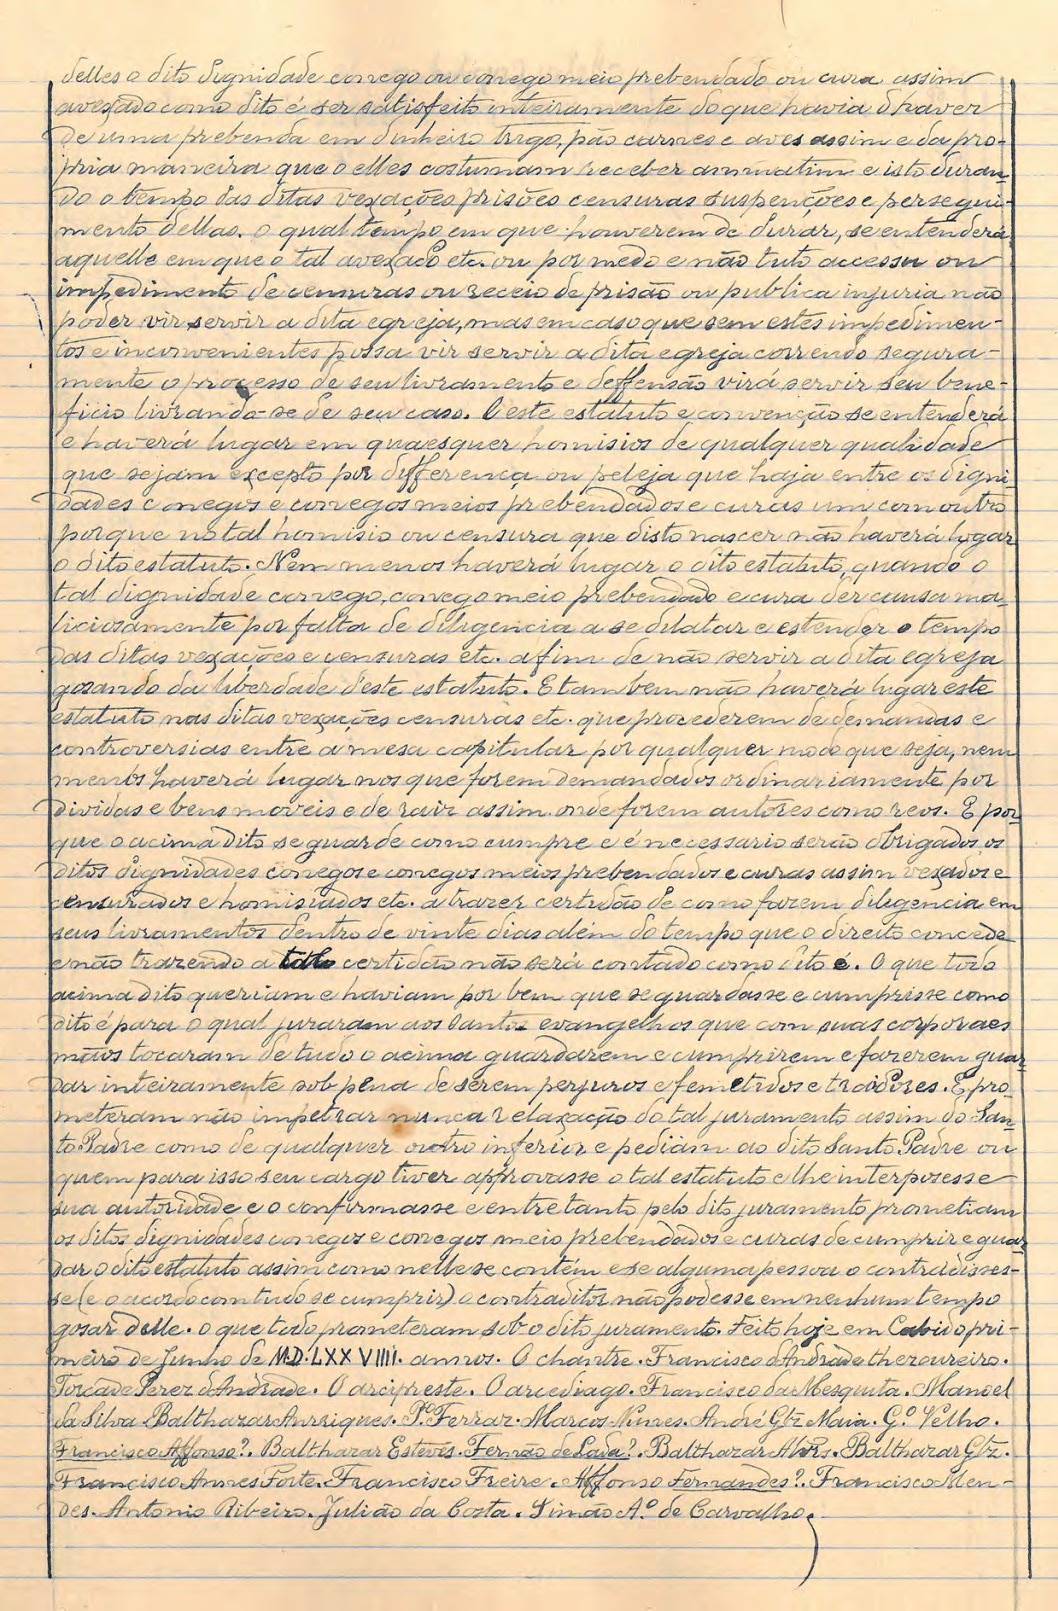 delles o dito dignidade conego ou conego meio prebendado ou cura assim
avexado como dito é ser satisfeito inteiramente do que havia d'haver
de uma prebenda em dinheiro trigo, pão carnes e aves assim e da pro-
pria maneira que o elles costumam receber annuatim e isto duran-
do o tempo das ditas vexações prisões censuras suspenções e persegui-
mento dellas. O qual tempo em que houverem de durar, se entenderá
aquelle em que o tal avexado etc. ou por medo e não tuto accessu ou
impedimento de censuras ou receio de prisão ou publica injuria não
poder vir servir a dita egreja, mas em caso que sem estes impedimen-
tos e inconvenientes possa vir servir a dita egreja correndo segura-
mente o processo de seu livramento e deffensão virá servir seu bene-
ficio livrando-se de seu caso. E este estatuto e convenção se entenderá
e haverá lugar em quaesquer homisios de qualquer qualidade
que sejam excepto por differença ou peleja que haja entre os digni-
dades conegos e conegos meios prebendados e curas um com outro
porque no tal homisio ou censura que disto nascer não haverá logar
o dito estatuto. Nem menos haverá lugar o dito estatuto, quando o
tal dignidade conego, conego meio prebendado e cura der causa ma-
liciosamente por falta de diligencia a se dilatar e estender o tempo
das ditas vexações e censuras etc. afim de não servir a dita egreja
gosando da liberdade d'este estatuto. E tambem não haverá lugar este
estatuto nas ditas vexações censuras etc. que procederem de demandas e
controversias entre a mesa capitular por qualquer modo que seja, nem
menos haverá lugar nos que forem demandados ordinariamente por
dividas e bens moveis e de raiz assim onde forem autores como reos. E por
que o acima dito se guarde como cumpre e é necessario serão obrigados os
ditos dignidades conegos e conegos meios prebendados e curas assim vexados e
censurados e homisiados etc. a trazer certidão de como fazem diligencia em
seus livramentos dentro de vinte dias além do tempo que o direito concede
e não trazendo a tal certidão não será contado como dito é. O que todo
acima dito queriam e haviam por bem que se guardasse e cumprisse como
dito é para o qual juraram aos Santos evangelhos que com suas corporaes
mãos tocaram de tudo o acima guardarem e cumprirem e fazerem guar-
dar inteiramente sob pena de serem perjuros e femetidos e traidores. E pro-
meteram não impetrar nunca relaxação do tal juramento assim do San-
to Padre como de qualquer outro inferior e pediam ao dito Santo Padre ou
quem para isso seu cargo tiver approvasse o tal estatuto e lhe interposesse
sua autoridade e o confirmasse e entretanto pelo dito juramento prometiam
os ditos dignidades conegos e conegos meio prebendados e curas de cumprir e guar-
dar o dito estatuto assim como nelle se contém e se alguma pessoa o contradisses-
se (e o acordo com tudo se cumprir) o contraditor não podesse em nenhum tempo
gosar delle. O que todo prometeram sob o dito juramento. Feito hoje em Cabido pri-
meiro de Junho de M.D.LXXVIIII. annos. O chantre. Francisco d'Andrade thezoureiro.
Torcade Perez d'Andrade. O arcipreste. O arcediago. Francisco da Mesquita. Manoel
da Silva Balthazar Anriques. Pº Ferraz. Marcos Nunes. André Glz Maia. Gº Velho.
Francisco Affonso?. Balthazar Esteves. Fernão de Lada?. Balthazar Alvrs. Balthazar Glz.
Francisco Annes Forte. Francisco Freire. Affonso Fernandes?. Francisco Men-
des. Antonio Ribeiro. Julião da Costa. Simão Aº. de Carvalho.